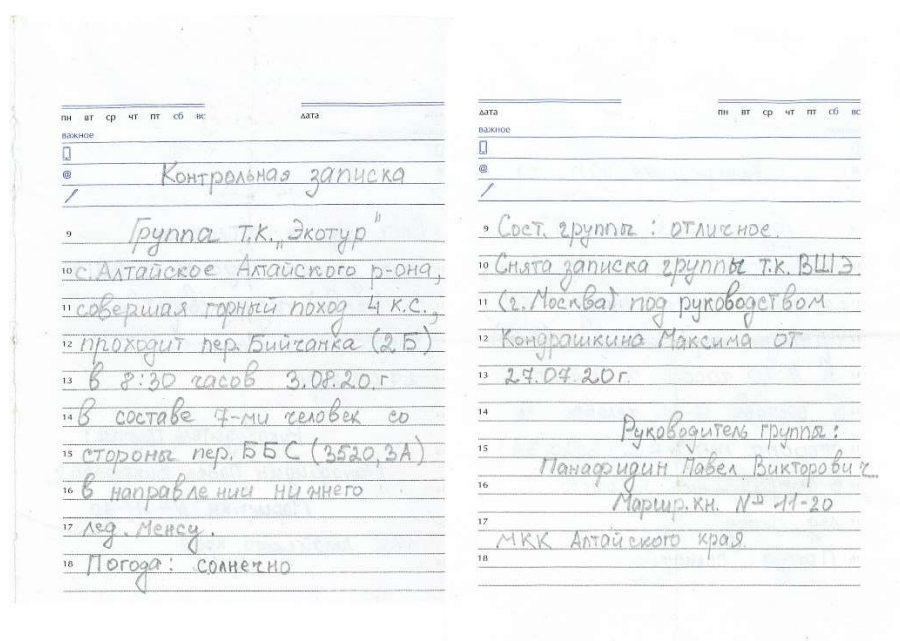 пн вт ср чт пт сб вс дата
важное
@
Контрольная записка
9 Группа т.к. „Экотур"
10 с. Алтайское Алтайского р-она,
11 совершая горный поход 4 к.с.,
12 проходит пер. Бийчанка (2Б)
13 в 8:30 часов 3.08.20.г
14 в составе 7-ми человек со
15 стороны пер. ББС (3520, 3А)
16 в направлении нижнего
17 лед. Менсу.
18 Погода: солнечно
дата пн вт ср чт пт сб вс
важное
@
9 Сост. группы: отличное.
10 Снята записка группы т.к. ВШЭ
11 (г. Москва) под руководством
12 Кондрашкина Максима от
13 27.07.20г.
14
Руководитель группы:
15
Панафидин Павел Викторович
16
Маршр. кн. № 11-20
17
МКК Алтайского края.
18